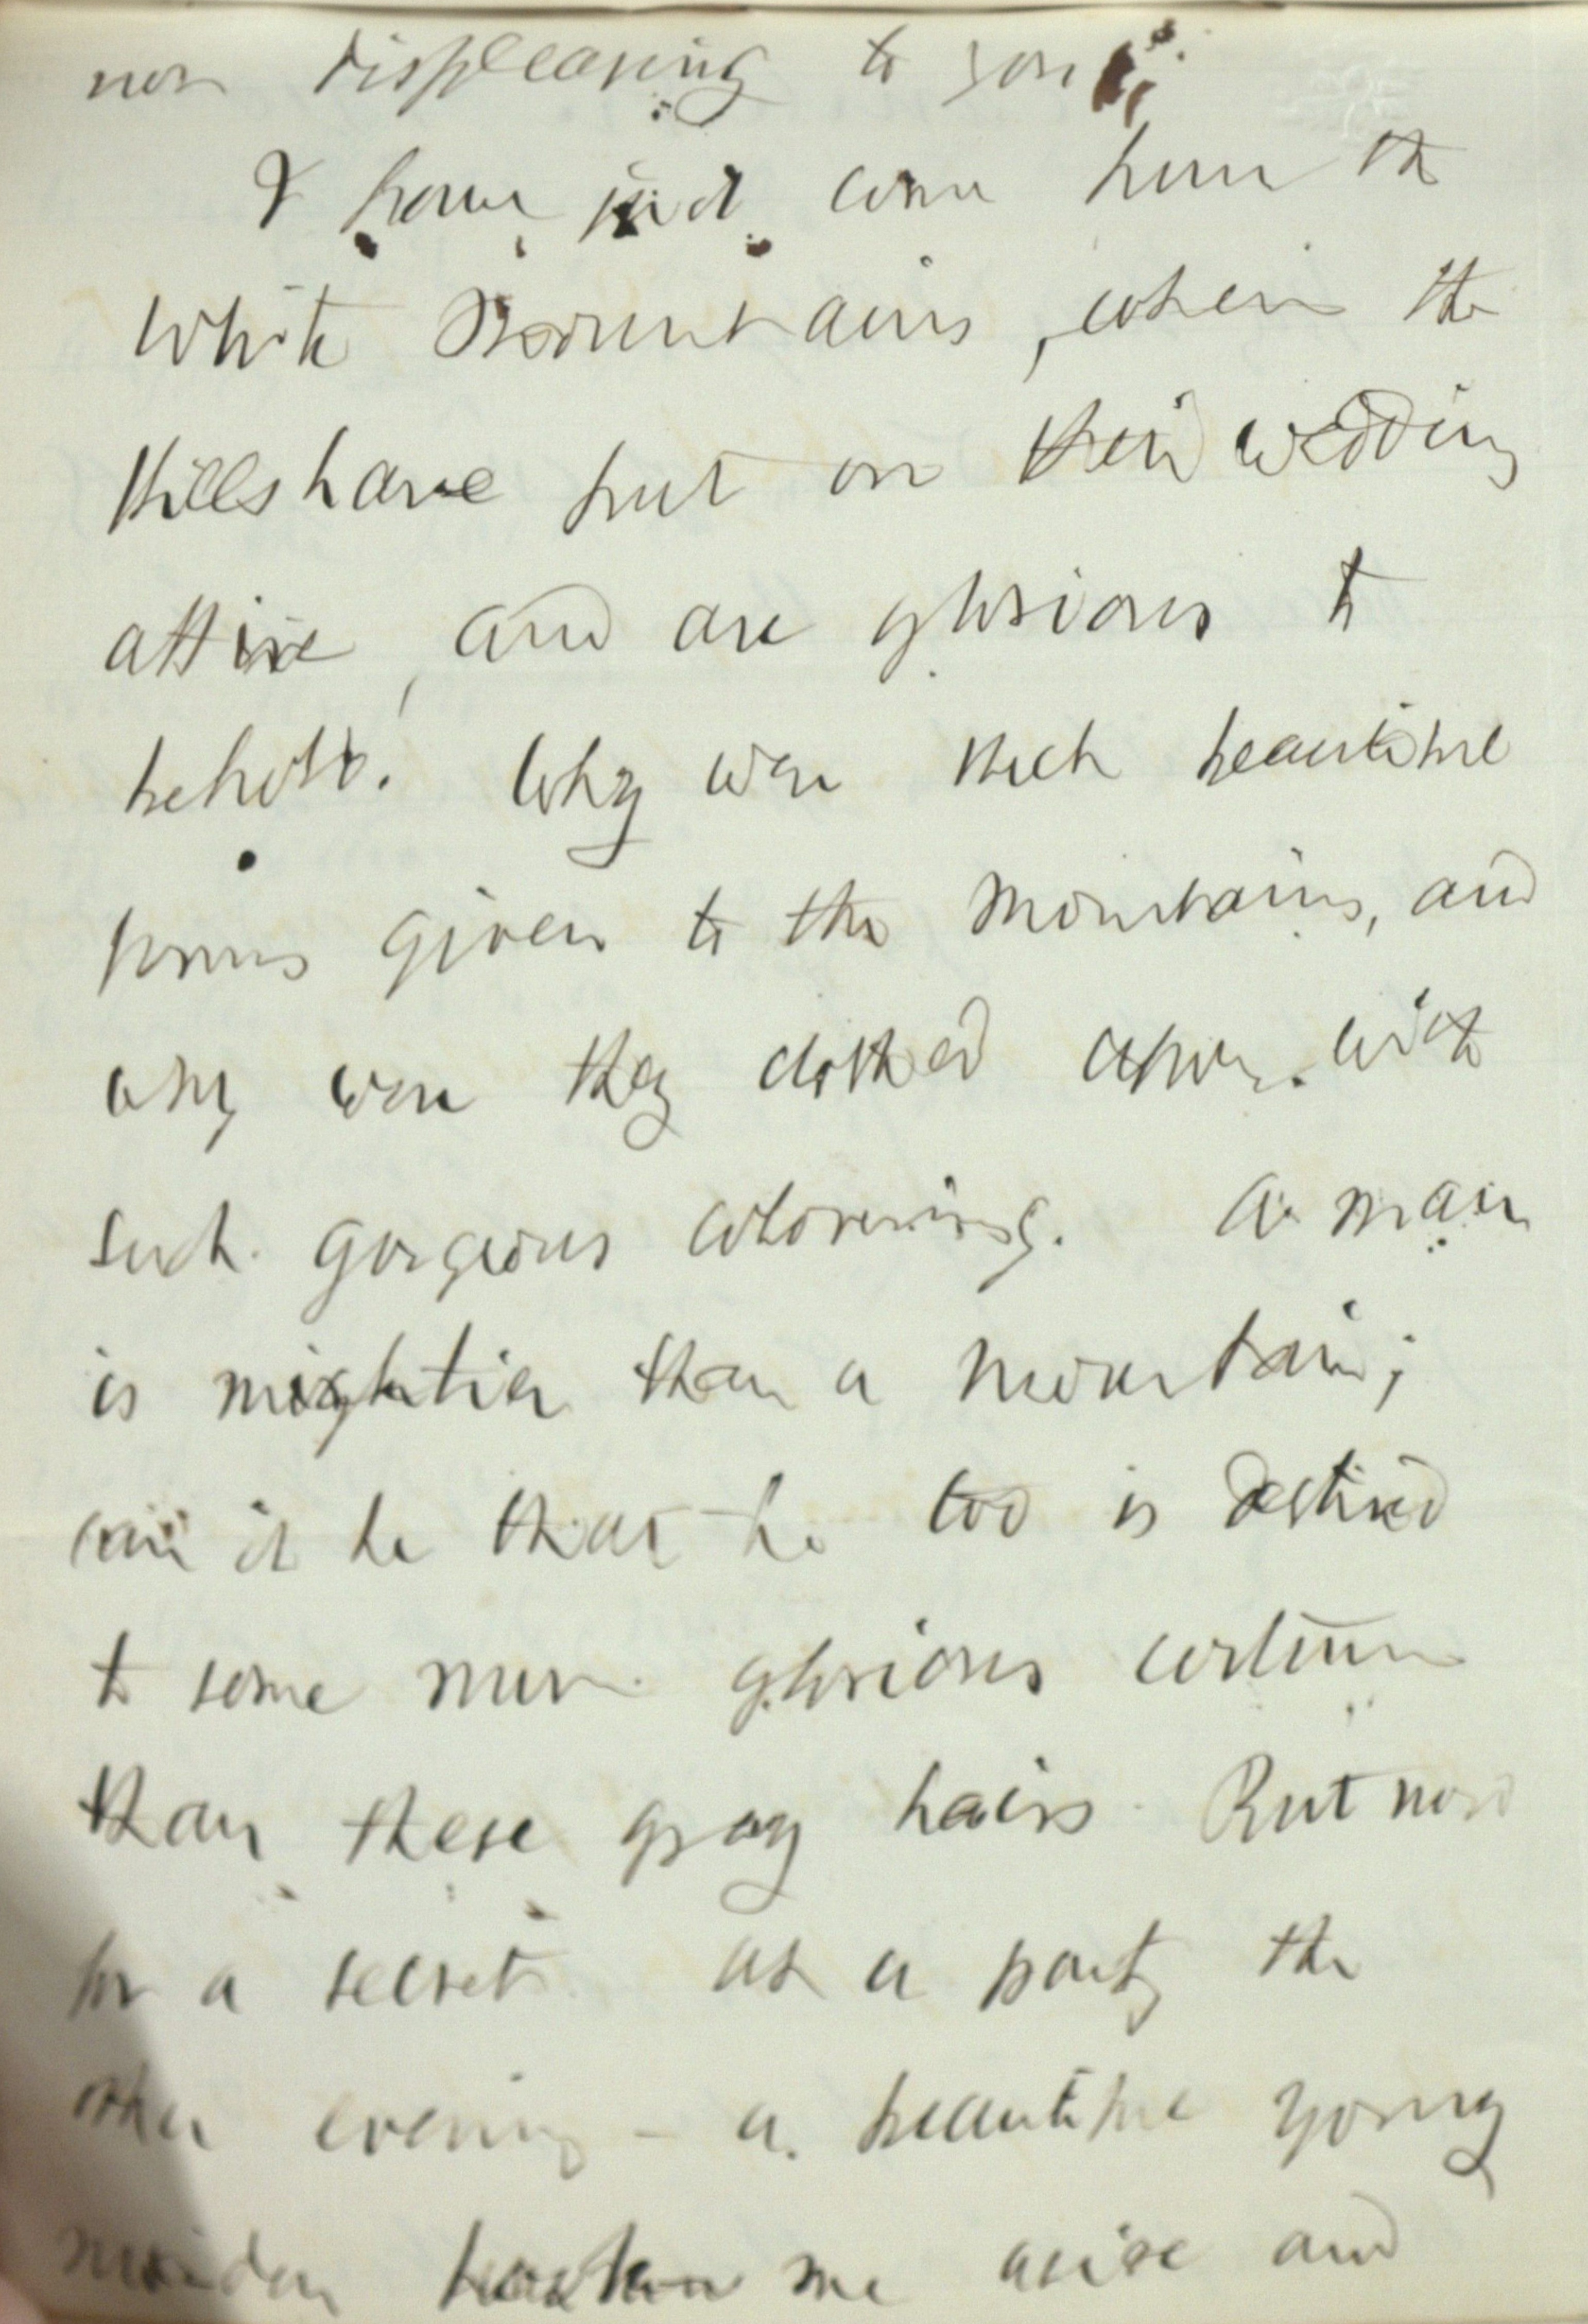 not displeasing to you.
I have just come from the
White Mountains, where the
Hills have put on their wedding
attire, and are glorious to
behold. Why were such beautiful
forms given to the mountains, and
why were they clothed upon with
such gorgeous colorening. A man
is mightier than a mountain;
can it be that he too is destined
to some more glorious costume
than these gray hairs. But now
for a secret. At a party the
other evening - a beautiful young
maiden me aside and